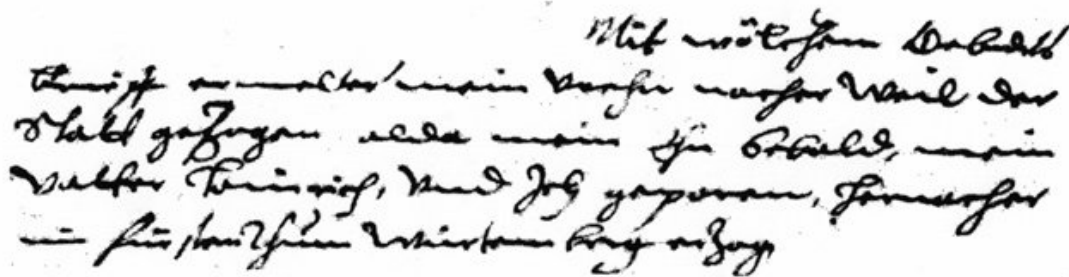 Mit wölchem
ermelter mein Vrehn nacher Weil der
Statt gezogen alda mein Ehn Sebald, mein
Vatter Heinrich, Vnd Ich geporen, hernacher
im fürstenthum Würtemberg erzog